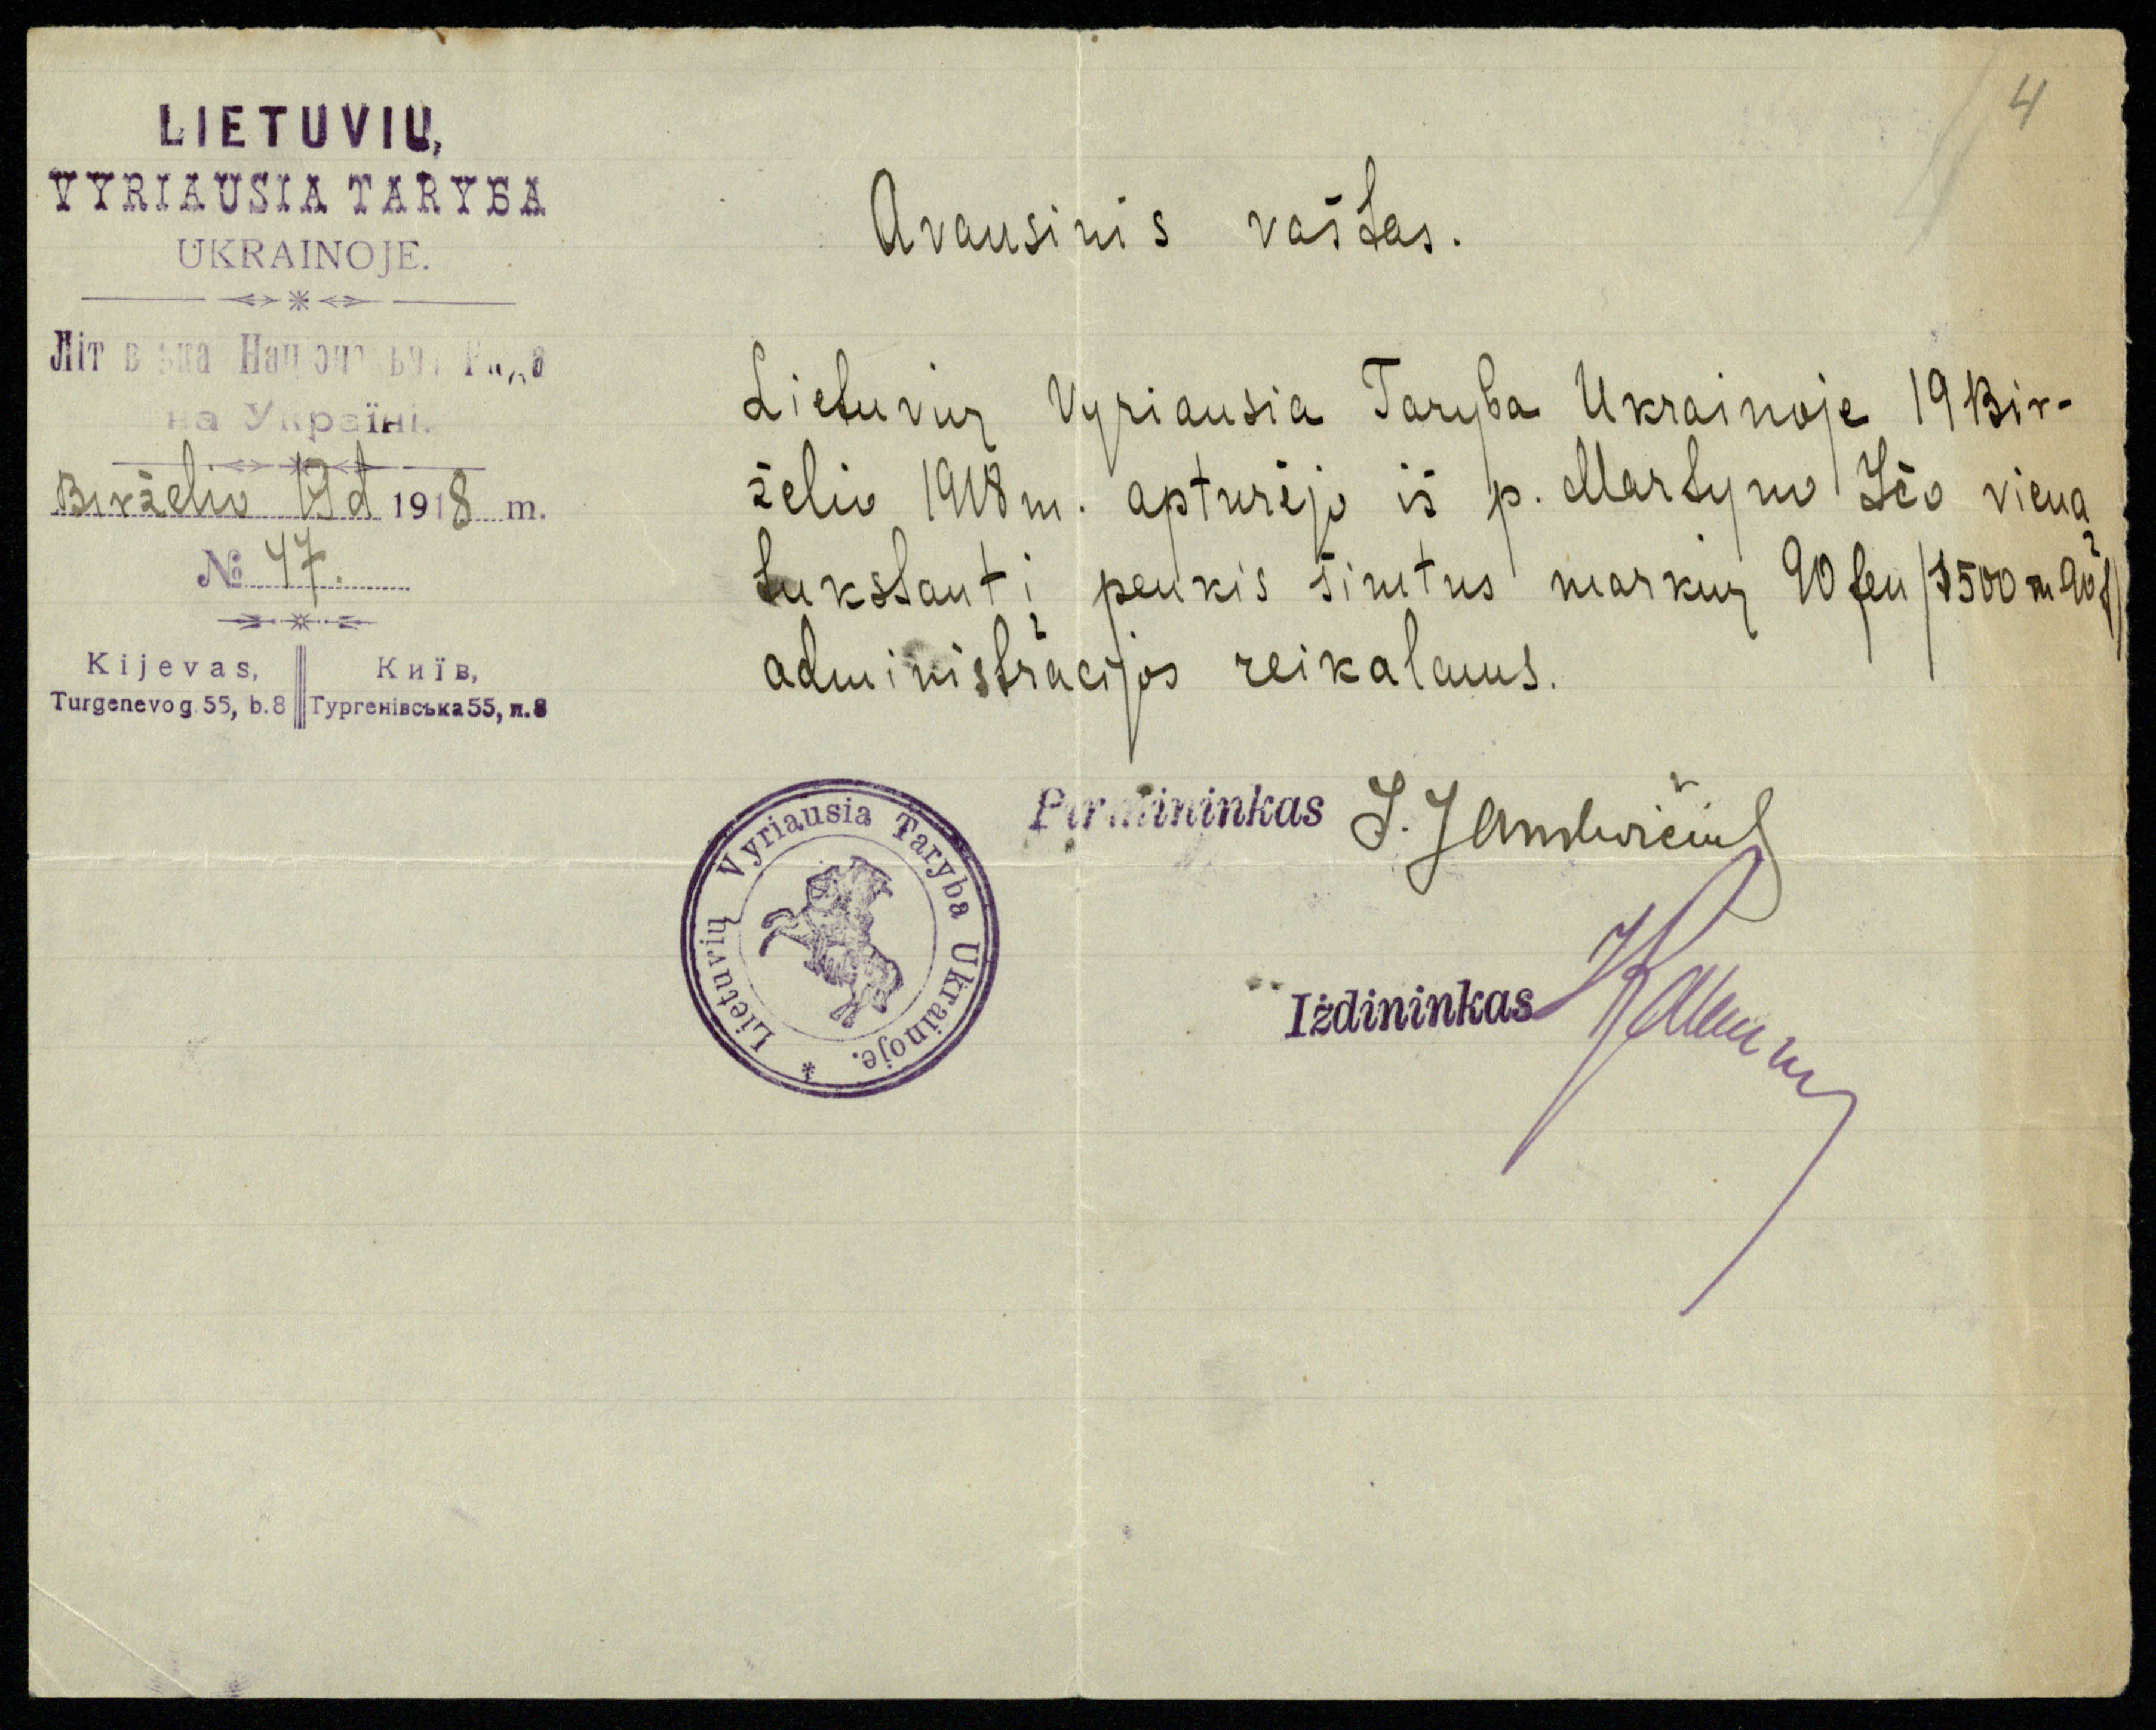 LIETUVIŲ
VYRIAUSIA TARYBA
UKRAINOJE.
на Україні.
Birželio 19 d 1918 m.
№ 47.
Kijevas, Київ,
Turgenevo g. 55, b. 8 Тургенівська 55, п. 8
4
Avansinis raštas.
Lietuvių Vyriausia Taryba Ukrainoje 19 Bir-
želio 1918 m. apturėjo iš p. Martyno Yčo vieną
tukstantį penkis šimtus markių 90 fen (1500 m 90 f)
administracijos reikalams.
Pirmininkas
Iždininkas
Lietuvių Vyriausia Taryba Ukrainoje. *